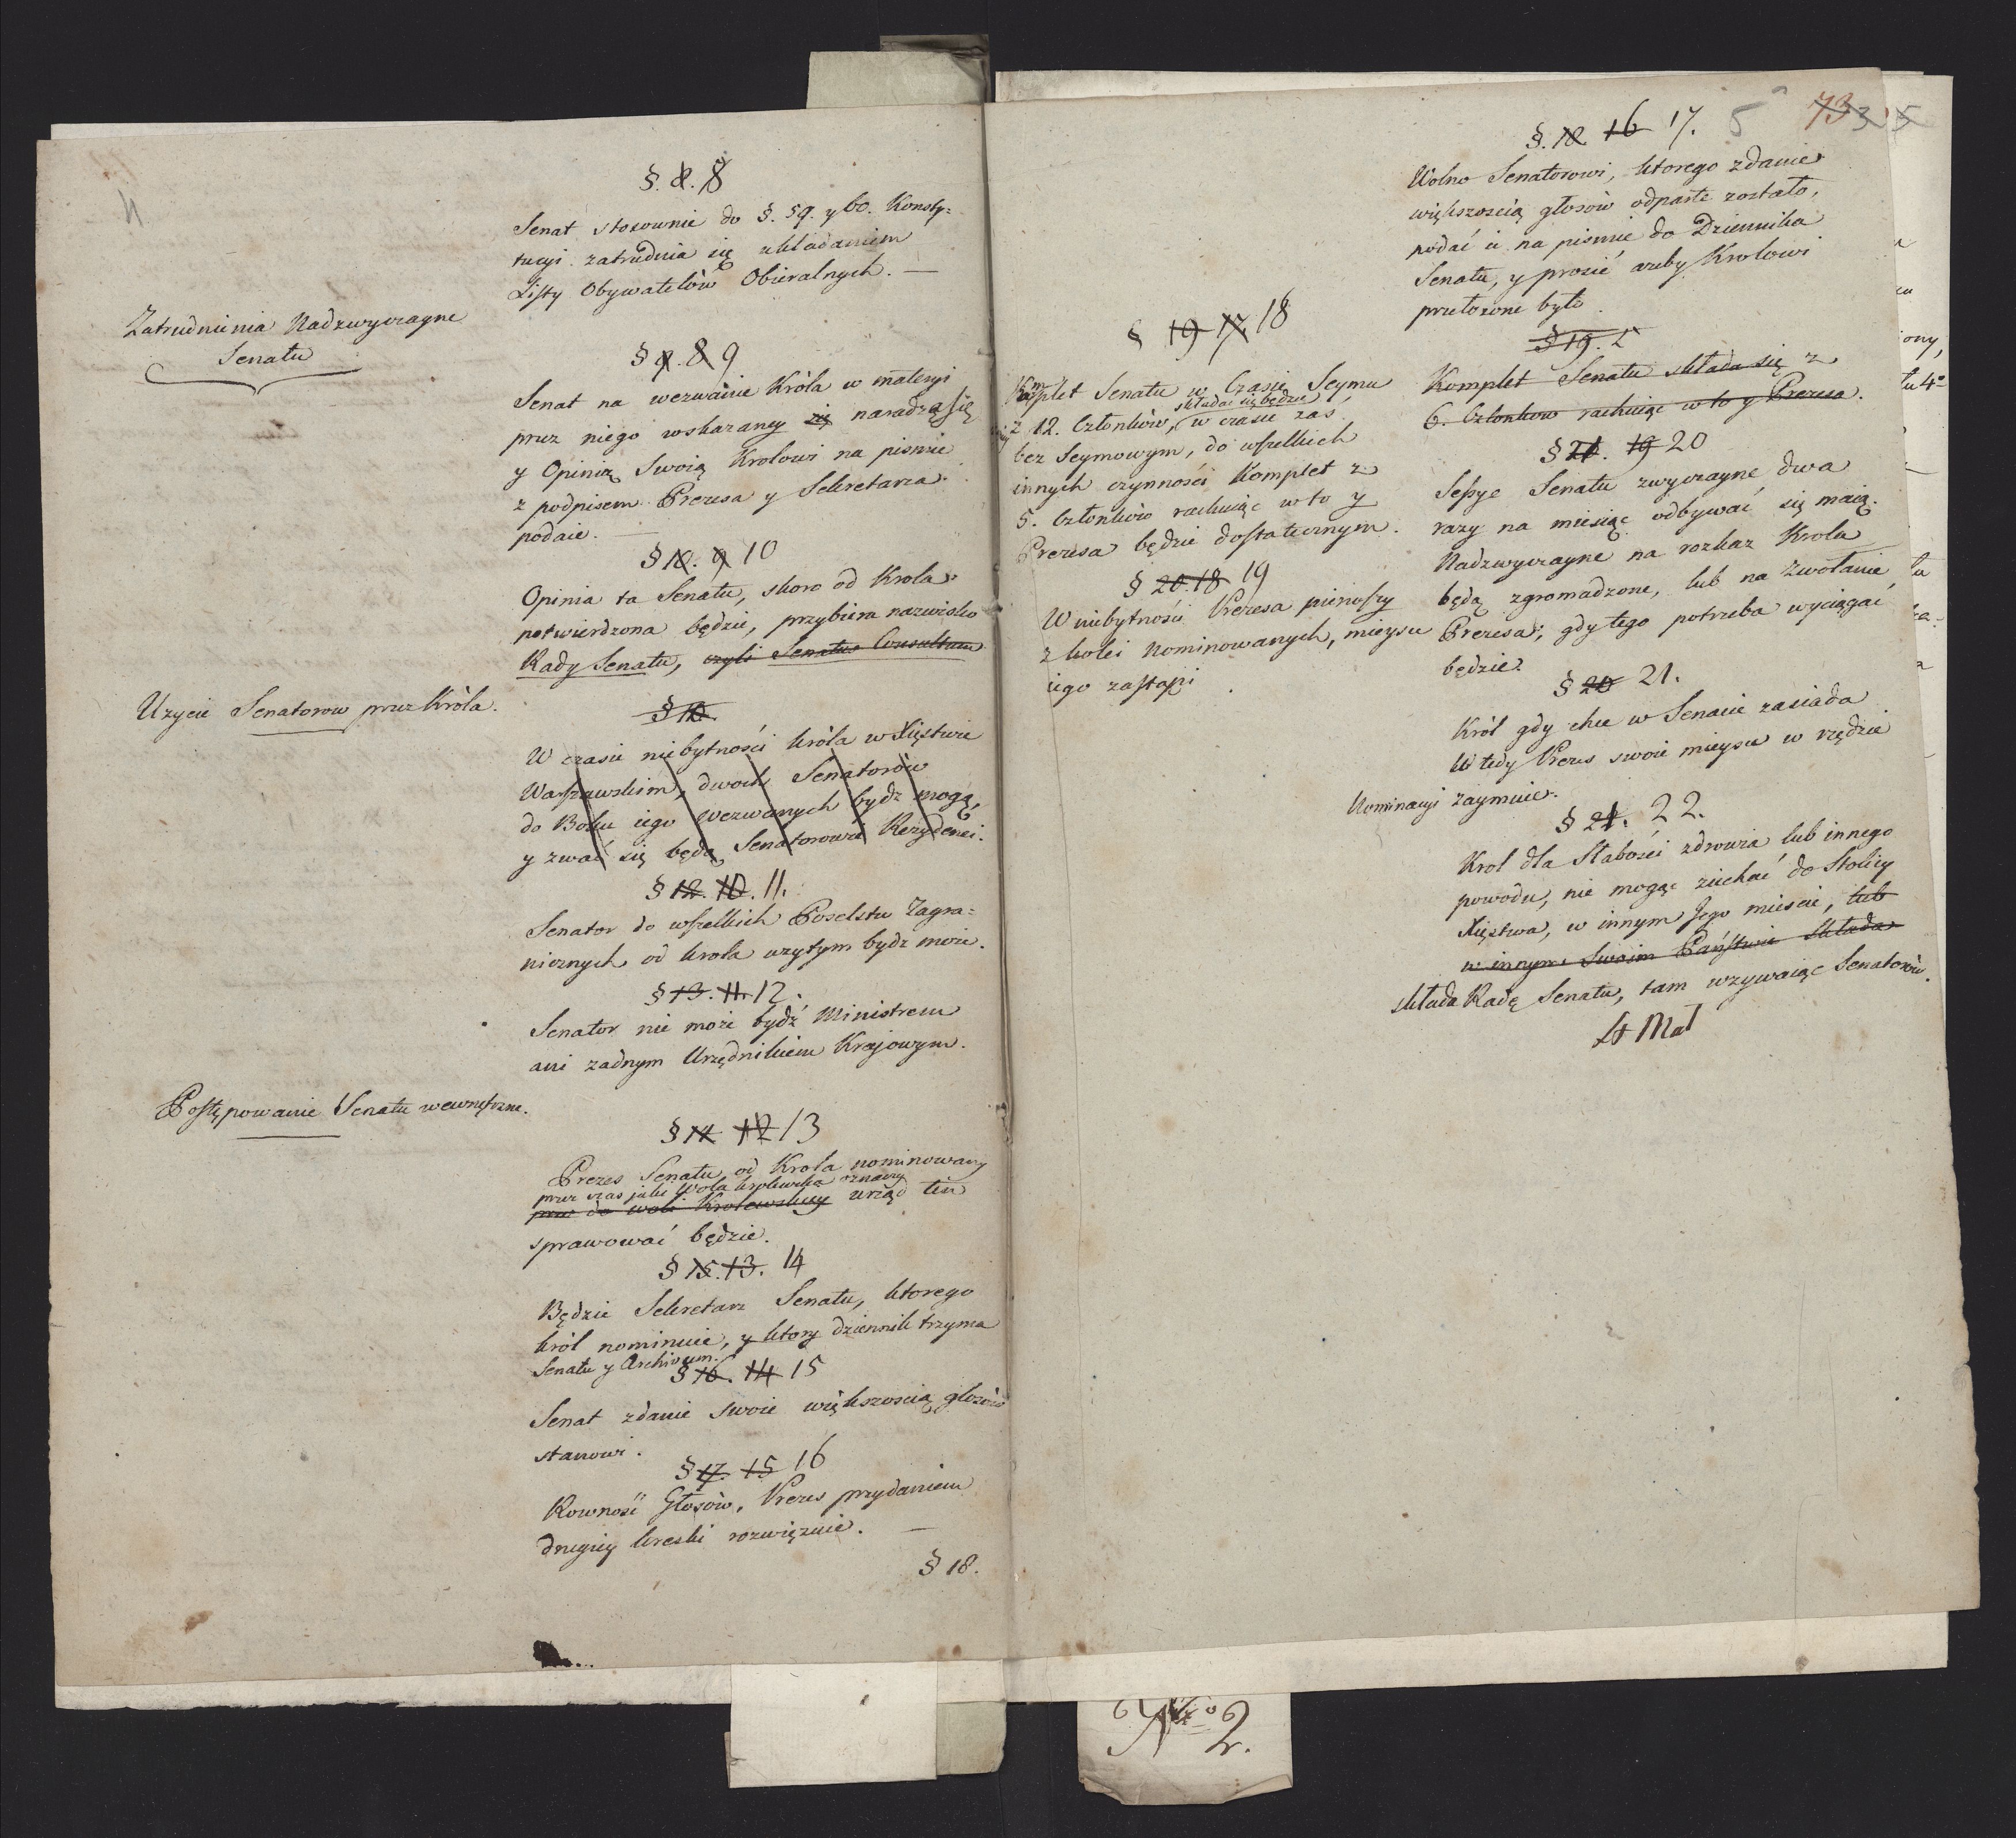 4
§. 8. 8
Senat stosownie do §. 59. y 60. Konsty=
tucyi zatrudnia się układaniem
Listy Obywatelów Obieralnych. —
Zatrudnienia Nadzwyczayne
Senatu
§ 9. 8 9
Senat na wezwanie Króla w materyi
przez niego wskazaney się naradza się
y Opinią Swoią Krolowi na pismie
z podpisem Prezesa y Sekretarza
podaie. —
§ 10. 9 10
Opinia ta Senatu, skoro od Krola
potwierdzona będzie, przybiera nazwisko
Rady Senatu, czyli Senatus Consultum
Uzycie Senatorow przez Króla.
§ 10.
W czasie niebytności króla w Xięstwie
Warszawskim, dwoch Senatorów
do Boku iego wezwanych bydz mogą,
y zwać się będą Senatorowie Rezydenci.
§ 12. 10. 11.
Senator do wszelkich Poselstw Zagra=
nicznych od krola uzytym bydz może.
§ 13. 11. 12.
Senator nie może bydź Ministrem
ani zadnym Urzędnikiem Krajowym.
Postępowanie Senatu wewnętrzne.
§ 14 12 13
Prezes Senatu od Krola nominowany
przez czas jaki Wola krolewska oznaczy
przez do woli Krolewskiey urząd ten
sprawować będzie.
§ 15. 13. 14
Będzie Sekretarz Senatu, ktorego
król nominuie, y ktory dziennik trzyma
Senatu y Archivum.
§ 16. 14 15
Senat zdanie swoie większoscią głosów
stanowi.
§ 17. 15 16
Rowność Głosów, Prezes przydaniem
drugiey kreski rozwięzuie. —
§ 18.
73 3 5
5
§. 18 16 17.
Wolno Senatorowi, ktorego zdanie
większoscią głosów odparte zostało,
podać ie na pismie do Dziennika
Senatu, y prosić azeby Krolowi
przełozone było.
§ 19.
Komplet Senatu składa się z
6. Członkow rachuiąc w to y Prezesa.
§ 19 17 18
Komplet Senatu w Czasie Seymu
składać się będzie
z 12. Członków, w czasie zaś
bez Seymowym, do wszelkich
innych czynności Komplet z
5. Członków rachuiąc w to y
Prezesa będzie dostatecznym.
§ 20. 18 19
W niebytności Prezesa pierwszy
z kolei nominowanych, mieysce
iego zastąpi
§ 21. 19 20
Sessye Senatu zwyczayne dwa
razy na miesiąc odbywać się maią.
Nadzwyczayne na rozkaz Krola
będą zgromadzone, lub na Zwołanie
Prezesa, gdy tego potrzeba wyciągać
będzie.
§ 20 21.
Król gdy chce w Senacie zasiada
Wtedy Prezes swoie mieysce w rzędzie
Nominacyi zaymuie.
§ 21. 22.
Krol dla Słabości zdrowia lub innego
powodu, nie mogąc ziechać do Stolicy
Xięstwa, w innym Jego miescie, lub
w innym Swoim Państwie składa
składa Radę Senatu, tam wzywaiąc Senatorów.
No 2.